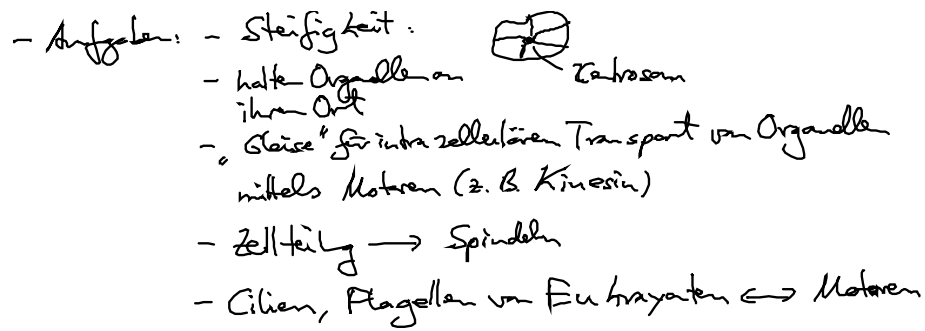 - Aufgaben: - Steifigkeit:
Zentrosom
- halten Organellen an
ihrem Ort
- „Gleise“ für intrazellulären Transport von Organellen
mittels Motoren (z. B. Kinesin)
- Zellteilung → Spindeln
- Cilien, Flagellen von Eukaryonten ↔ Motoren